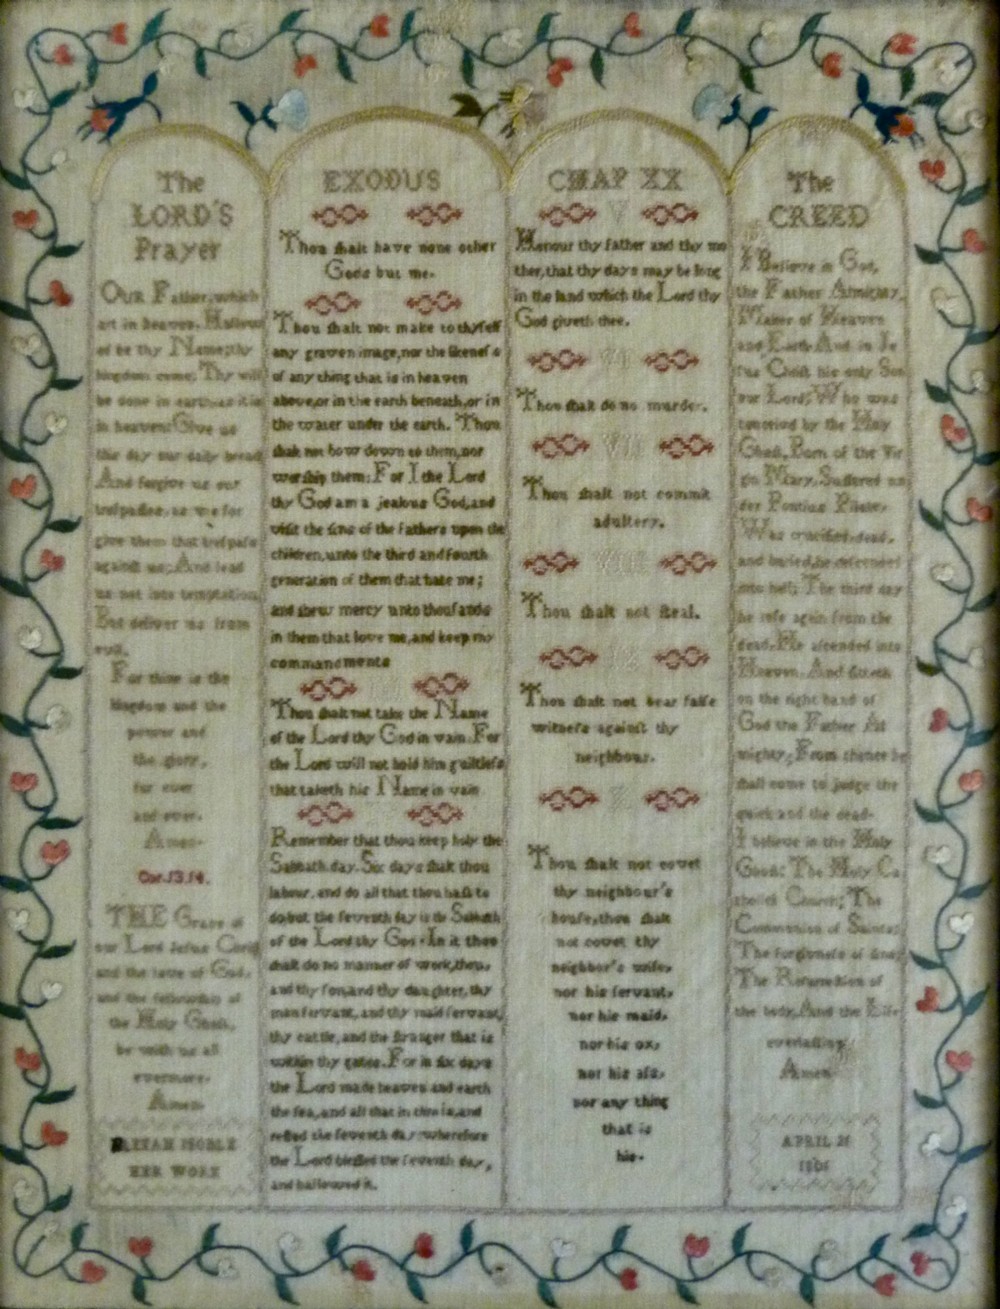 The
LORD'S
Prayer
OUR Father, which
art in heaven, Hallow
ed be thy Name; thy
kingdom come; Thy will
be done in earth as it is
in heaven: Give us
this day our daily bread
And forgive us our
trespasses, as we for
give them that trespass
against us; And lead
us not into temptation
But deliver us from
evil.
For thine is the
kingdom and the
power and
the glory,
for ever
and ever.
Amen.
Cor. 13. 14.
THE Grace of
our Lord Jesus Christ
and the love of God,
and the fellowship of
the Holy Ghost,
be with us all
evermore.
Amen.
NOBLE
HER WORK
EXODUS
Thou shalt have none other
Gods but me.
Thou shalt not make to thyself
any graven image, nor the likeness
of any thing that is in heaven
above, or in the earth beneath, or in
the water under the earth. Thou
shalt not bow down to them, nor
worship them: For I the Lord
thy God am a jealous God, and
visit the sins of the fathers upon the
children, unto the third and fourth
generation of them that hate me;
and shew mercy unto thousands
in them that love me, and keep my
commandments
III
Thou shalt not take the Name
of the Lord thy God in vain. For
the Lord will not hold him guiltless
that taketh his Name in vain
Remember that thou keep holy the
Sabbath day. Six days shalt thou
labour, and do all that thou hast to
do but the seventh day is the Sabbath
of the Lord thy God. In it thou
shalt do no manner of work, thou,
and thy son, and thy daughter, thy
man servant, and thy maid servant,
thy cattle, and the stranger that is
within thy gates. For in six days
the Lord made heaven and earth
the sea, and all that in them is, and
rested the seventh day: wherefore
the Lord blessed the seventh day,
and hallowed it.
CHAP XX
V
Honour thy father and thy mo
ther, that thy days may be long
in the land which the Lord thy
God giveth thee.
VI
Thou shalt do no murder.
VII
Thou shalt not commit
adultery.
VIII
Thou shalt not steal.
IX
Thou shalt not bear false
witness against thy
neighbour.
X
Thou shalt not covet
thy neighbour's
house, thou shalt
not covet thy
neighbor's wife,
nor his servant,
nor his maid,
nor his ox,
nor his ass,
nor any thing
that is
his.
The
CREED
I Believe in God,
the Father Almighty,
Maker of Heaven
and Earth And in Je
sus Christ his only Son
our Lord; Who was
conceived by the Holy
Ghost, Born of the Vir
gin Mary, Suffered un
der Pontius Pilate,
Was crucified, dead,
and buried, he descended
into hell; The third day
he rose again from the
dead, He ascended into
Heaven, And sitteth
on the right hand of
God the Father Al
mighty; From thence he
shall come to judge the
quick and the dead.
I believe in the Holy
Ghost: The Holy Ca
tholick Church; The
Communion of Saints;
The forgiveness of sins;
The Resurrection of
the body, And the Life
everlasting
Amen
APRIL